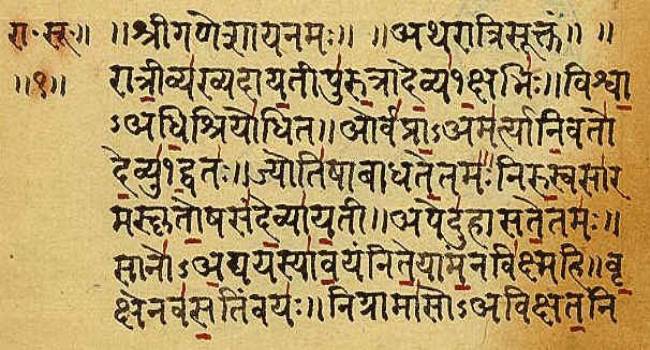 रा॰ सू॰॥ ॥श्रीगणेशायनमः॥ ॥अथरात्रिसूक्तं॥ ॥
॥१॥ रात्रीव्यख्यदायतीपुरुत्रादेव्य१क्षभिः॥विश्वा
ऽअधिश्रियोधित॥ओर्वप्राऽअमर्त्यानिवतो
देव्यु१द्वतः॥ज्योतिषाबाधतेतमः॑निरुस्वसार
मस्कृतोषसंदेव्यायती॥अपेदुहासतेतमः॥
सानोऽअद्ययस्यावयंनितेयामन्नविक्ष्महि॥वृ
क्षेनवसतिंवयः॥निग्रामासोऽअविक्षतनि